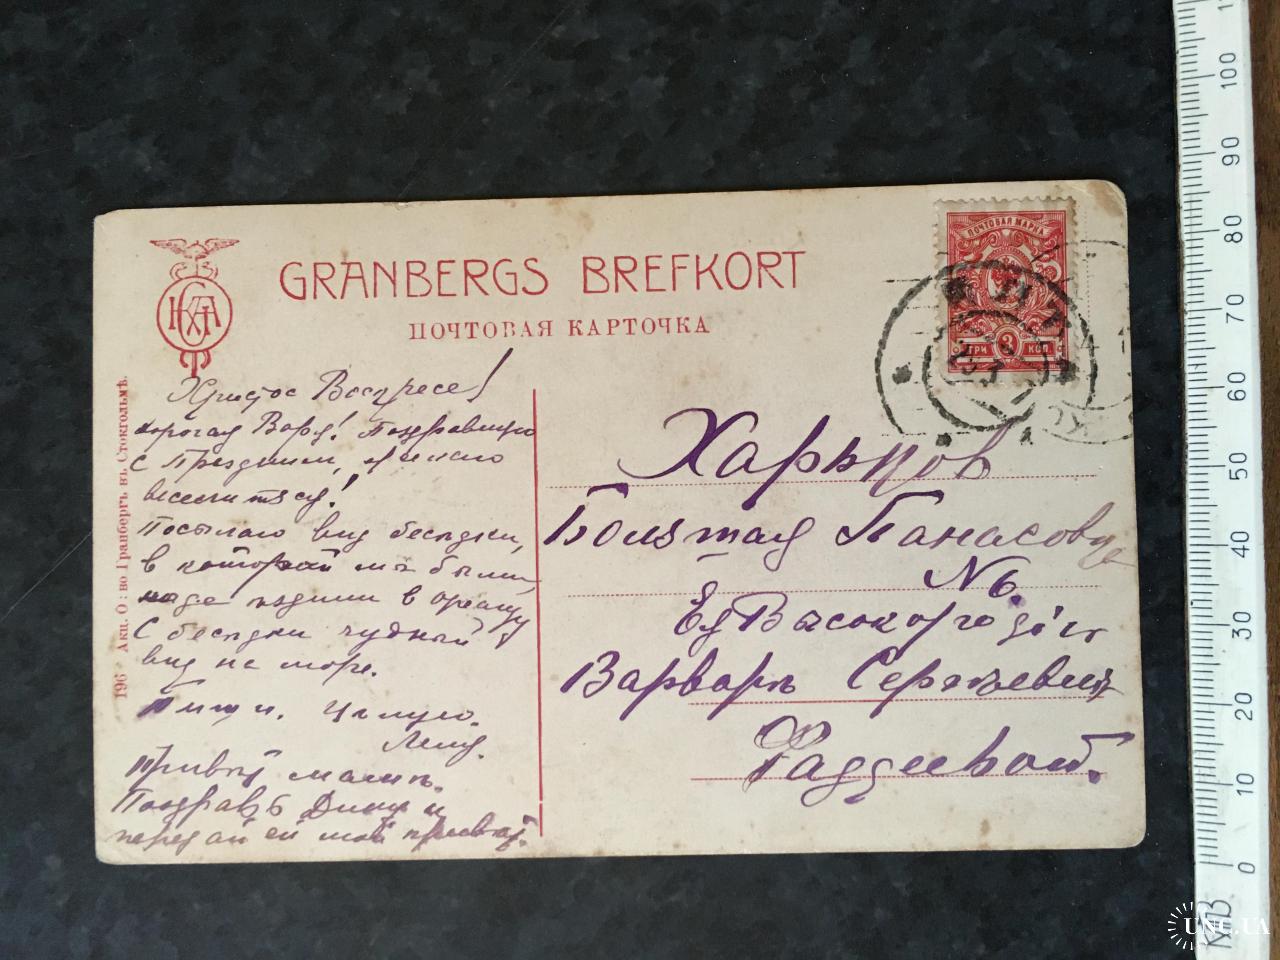 GRANBERGS BREFKORT
ПОЧТОВАЯ КАРТОЧКА
ПОЧТОВАЯ МАРКА
ТРИ 3 КОП
196 Акц. О:во Гранбергъ въ Стокгольмѣ.
Христос Воскресе!
дорогая Варя! Поздравляю
с Праздником, желаю
веселиться!
Посылаю вид беседки,
в которой мы были,
когда ездили в
С беседки чудный
вид на море.
Пиши. Целую.
Леля.
Привет маме.
Поздравь Дину и
передай ей мой привет.
Харьков
Большая Панасовка
№6.
Ея Высокородію
Варваре Сергѣевне
Фаддеевой.
100
90
80
70
60
50
40
30
20
10
0
UNC.UA